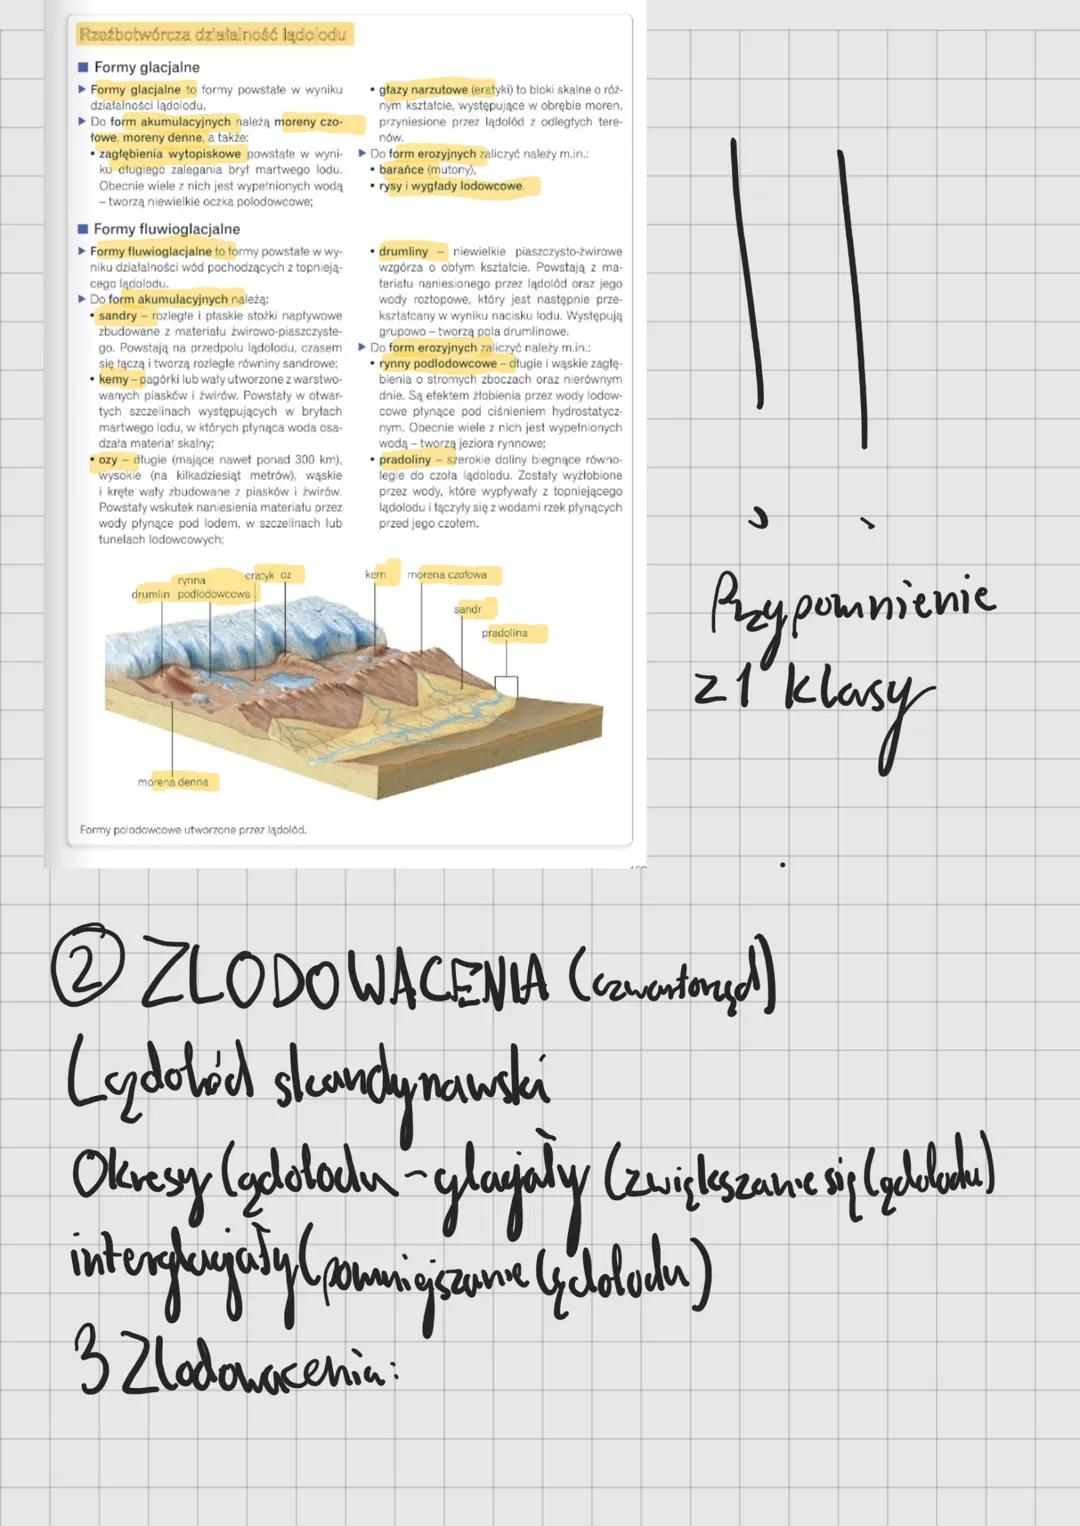 Rzeźbotwórcza działalność lądolodu
Formy glacjalne
Formy glacjalne to formy powstałe w wyniku
działalności lądolodu.
Do form akumulacyjnych należą moreny czo-
łowe, moreny denne, a także:
• zagłębienia wytopiskowe powstałe w wyni-
ku długiego zalegania brył martwego lodu.
Obecnie wiele z nich jest wypełnionych wodą
– tworzą niewielkie oczka polodowcowe;
• głazy narzutowe (eratyki) to bloki skalne o róż-
nym kształcie, występujące w obrębie moren,
przyniesione przez lądolód z odległych tere-
nów.
Do form erozyjnych zaliczyć należy m.in.:
• barańce (mutony),
• rysy i wygłady lodowcowe.
Formy fluwioglacjalne
Formy fluwioglacjalne to formy powstałe w wy-
niku działalności wód pochodzących z topnieją-
cego lądolodu.
Do form akumulacyjnych należą:
• sandry – rozległe i płaskie stożki napływowe
zbudowane z materiału żwirowo-piaszczyste-
go. Powstają na przedpolu lądolodu, czasem
się łączą i tworzą rozległe równiny sandrowe;
• kemy – pagórki lub wały utworzone z warstwo-
wanych piasków i żwirów. Powstały w otwar-
tych szczelinach występujących w bryłach
martwego lodu, w których płynąca woda osa-
dzała materiał skalny;
• ozy – długie (mające nawet ponad 300 km),
wysokie (na kilkadziesiąt metrów), wąskie
i kręte wały zbudowane z piasków i żwirów.
Powstały wskutek naniesienia materiału przez
wody płynące pod lodem, w szczelinach lub
tunelach lodowcowych;
• drumliny – niewielkie piaszczysto-żwirowe
wzgórza o obłym kształcie. Powstają z ma-
teriału naniesionego przez lądolód oraz jego
wody roztopowe, który jest następnie prze-
kształcany w wyniku nacisku lodu. Występują
grupowo – tworzą pola drumlinowe.
Do form erozyjnych zaliczyć należy m.in.:
• rynny podlodowcowe – długie i wąskie zagłę-
bienia o stromych zboczach oraz nierównym
dnie. Są efektem żłobienia przez wody lodow-
cowe płynące pod ciśnieniem hydrostatycz-
nym. Obecnie wiele z nich jest wypełnionych
wodą – tworzą jeziora rynnowe;
• pradoliny – szerokie doliny biegnące równo-
legle do czoła lądolodu. Zostały wyżłobione
przez wody, które wypływały z topniejącego
lądolodu i łączyły się z wodami rzek płynących
przed jego czołem.
rynna
eratyk oz
kem morena czołowa
drumlin podlodowcowa
sandr
pradolina
morena denna
Formy polodowcowe utworzone przez lądolód.
Przypomnienie
z 1 klasy
② ZLODOWACENIA (czwartorzęd)
Lądolód skandynawski
Okresy lądolodu - glacjały (zwiększanie się lądolodu)
interglacjały (pomniejszanie lądolodu)
3 Zlodowacenia: